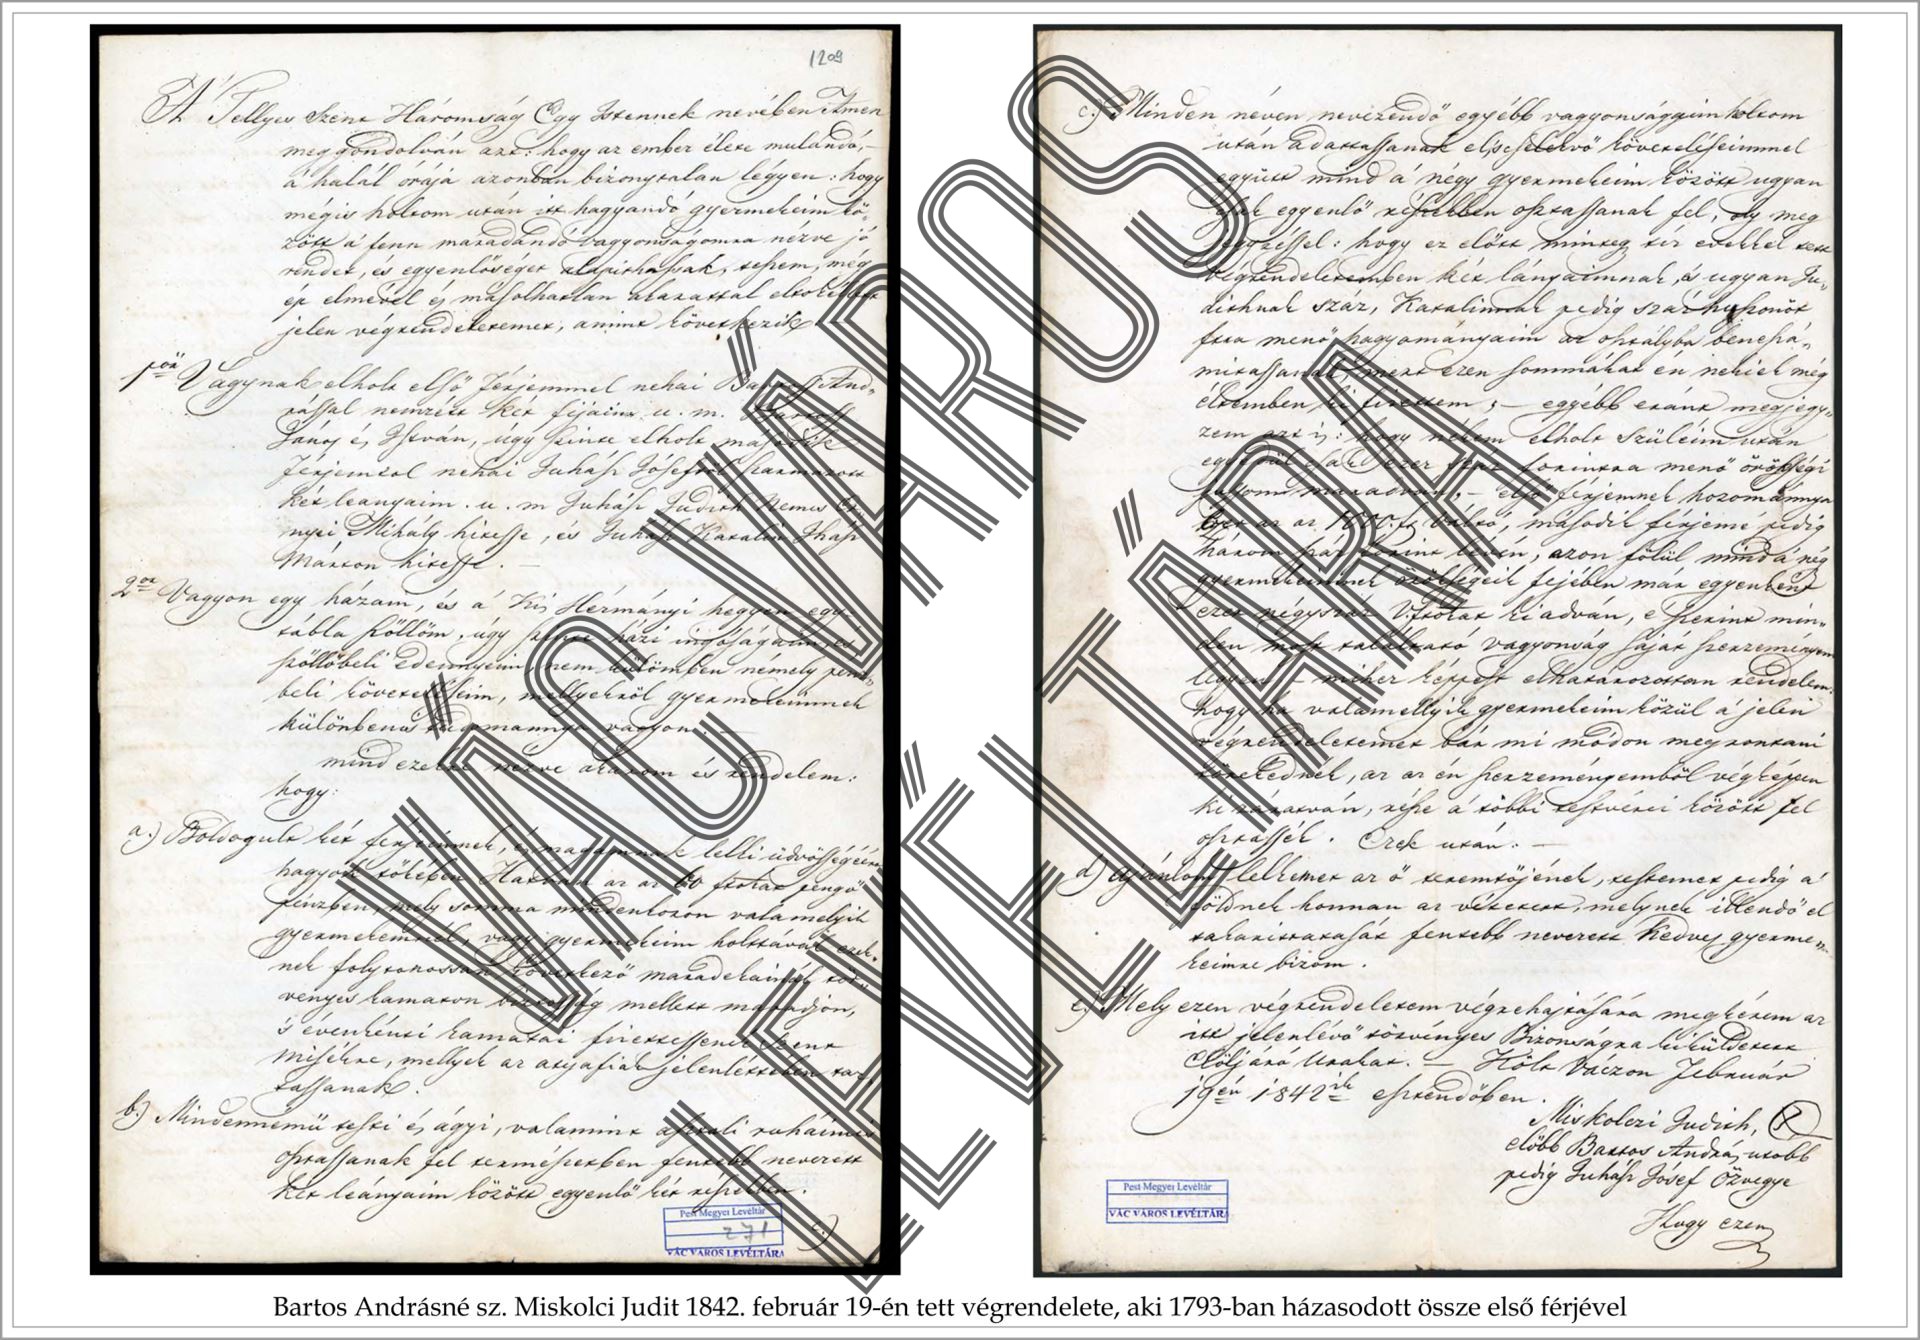 1209
A' Tellyes Szent Háromság Egy Istennek nevében Amen
meggondolván azt: hogy az ember élete mulandó,
a' halál órája azonban bizonytalan légyen: hogy
mégis holtom után itt hagyandó gyermekeim kö-
zött a' fenn maradandó vagyonságomra nézve jó
rendet, és egyenlőséget alapithassak, teszem, még
ép elmével és másolhatlan akarattal eltökéllett
jelen végrendeletemet, amint következik
1ör Vagynak elholt első férjemmel néhai Bartoss And-
rással nemzett két fijaim u. m. Bartoss
János és István, úgy szinte elholt második
férjemtől néhai Juhász Józseftől származott
két leányaim u. m Juhász Judith Nemes
Mihály hitesse, és Juhász Katalin
Márton hitesse. —
2or Vagyon egy házam, és a' Kis Hermányi hegyen egy
tábla szőllőm, úgy szinte házi ingóságaim, és
szőllőbeli edennyeim, nem külömben nemely pénz-
beli követeléseim, mellyekről gyermekeimnek
különben is tudomannya vagyon. —
mind ezekre nézve akarom és rendelem:
hogy:
a.) Boldogult két férjeimnek, és magamnak lelki üdvösségéért
hagyok tőkében Hatvan az az 60 ftokat pengő
pénzben, mely somma mindenkoron valamelyik
gyermekemnél, vagy gyermekeim holttával ezek-
nek folytonossan következő maradékainál tör-
vényes kamaton biztosság mellett maradjon,
's évenkénti kamatai fizettessenek Szent
misékre, mellyek az atyafiak jelenlétében tar-
tassanak.
b.) Mindennémü testi és ágyi, valamint asztali ruháimis
osztassanak fel természetben fentebb nevezett
két leányaim között egyenlő két részekben.
c.)
Pest Megyei Levéltár
271
VÁC VÁROS LEVÉLTÁRA
c.) Minden néven nevezendő egyébb vagyonságaim holtom
után adattassanak el, 's elelevő követeléseimmel
együtt mind a' négy gyermekeim között ugyan
csak egyenlő részekben osztassanak fel, oly meg
jegyzéssel: hogy ez előtt mintegy tíz évekkel tett
végrendeletemben két lányaimnak, 's ugyan Ju-
dithnak száz, Katalinnak pedig száz
ftra menő hagyományaim az osztályba beneszá-
mitassanak, mert ezen sommákat én nekiek még
éltemben ki fizettem; — egyébb eránt megjegy-
zem azt is: hogy nékem elholt szüleim után
egyedül csak ezer száz forintra menő örökségi
jussom maradván, — első férjemnek hozománnya
ezer az az 1000 ft váltó, második férjemé pedig
három száz forint lévén, azon fölül mind a' négy
gyermekeimnek örökségeik fejében már egyenként
ezer négyszáz Vftokat kiadván, e' szerint min-
den most található vagyonság saját szerzeményem
légyen — mihez képpest elhatározottan rendelem:
hogy ha valamellyik gyermekeim közül a' jelen
végrendeletemet bár mi módon megrontani
törekednék, az az én szerzeményemből végképpen
kizáratván, része a' többi testvérei között fel
osztassék. Ezek után: —
d) Ajánlom lelkemet az ő teremtőjének, testemet pedig a'
földnek honnan az vétetett, melynek illendő el
takaríttatását fentebb nevezett Kedves gyerme-
keimre bizom.
e.) Mely ezen végrendeletem végrehajtására megkérem az
itt jelenlévő törvényes Bizonságra kiküldetett
Elöljáró Urakat. — Költ Váczon Február
19én 1842ik esztendőben.
Miskolczi Judith, X
előbb Bartos András, utobb
pedig Juhász Jósef Özvegye
Hogy ezen
Pest Megyei Levéltár
VÁC VÁROS LEVÉLTÁRA
VÁC VÁROS
LEVÉLTÁRA
Bartos Andrásné sz. Miskolci Judit 1842. február 19-én tett végrendelete, aki 1793-ban házasodott össze első férjével